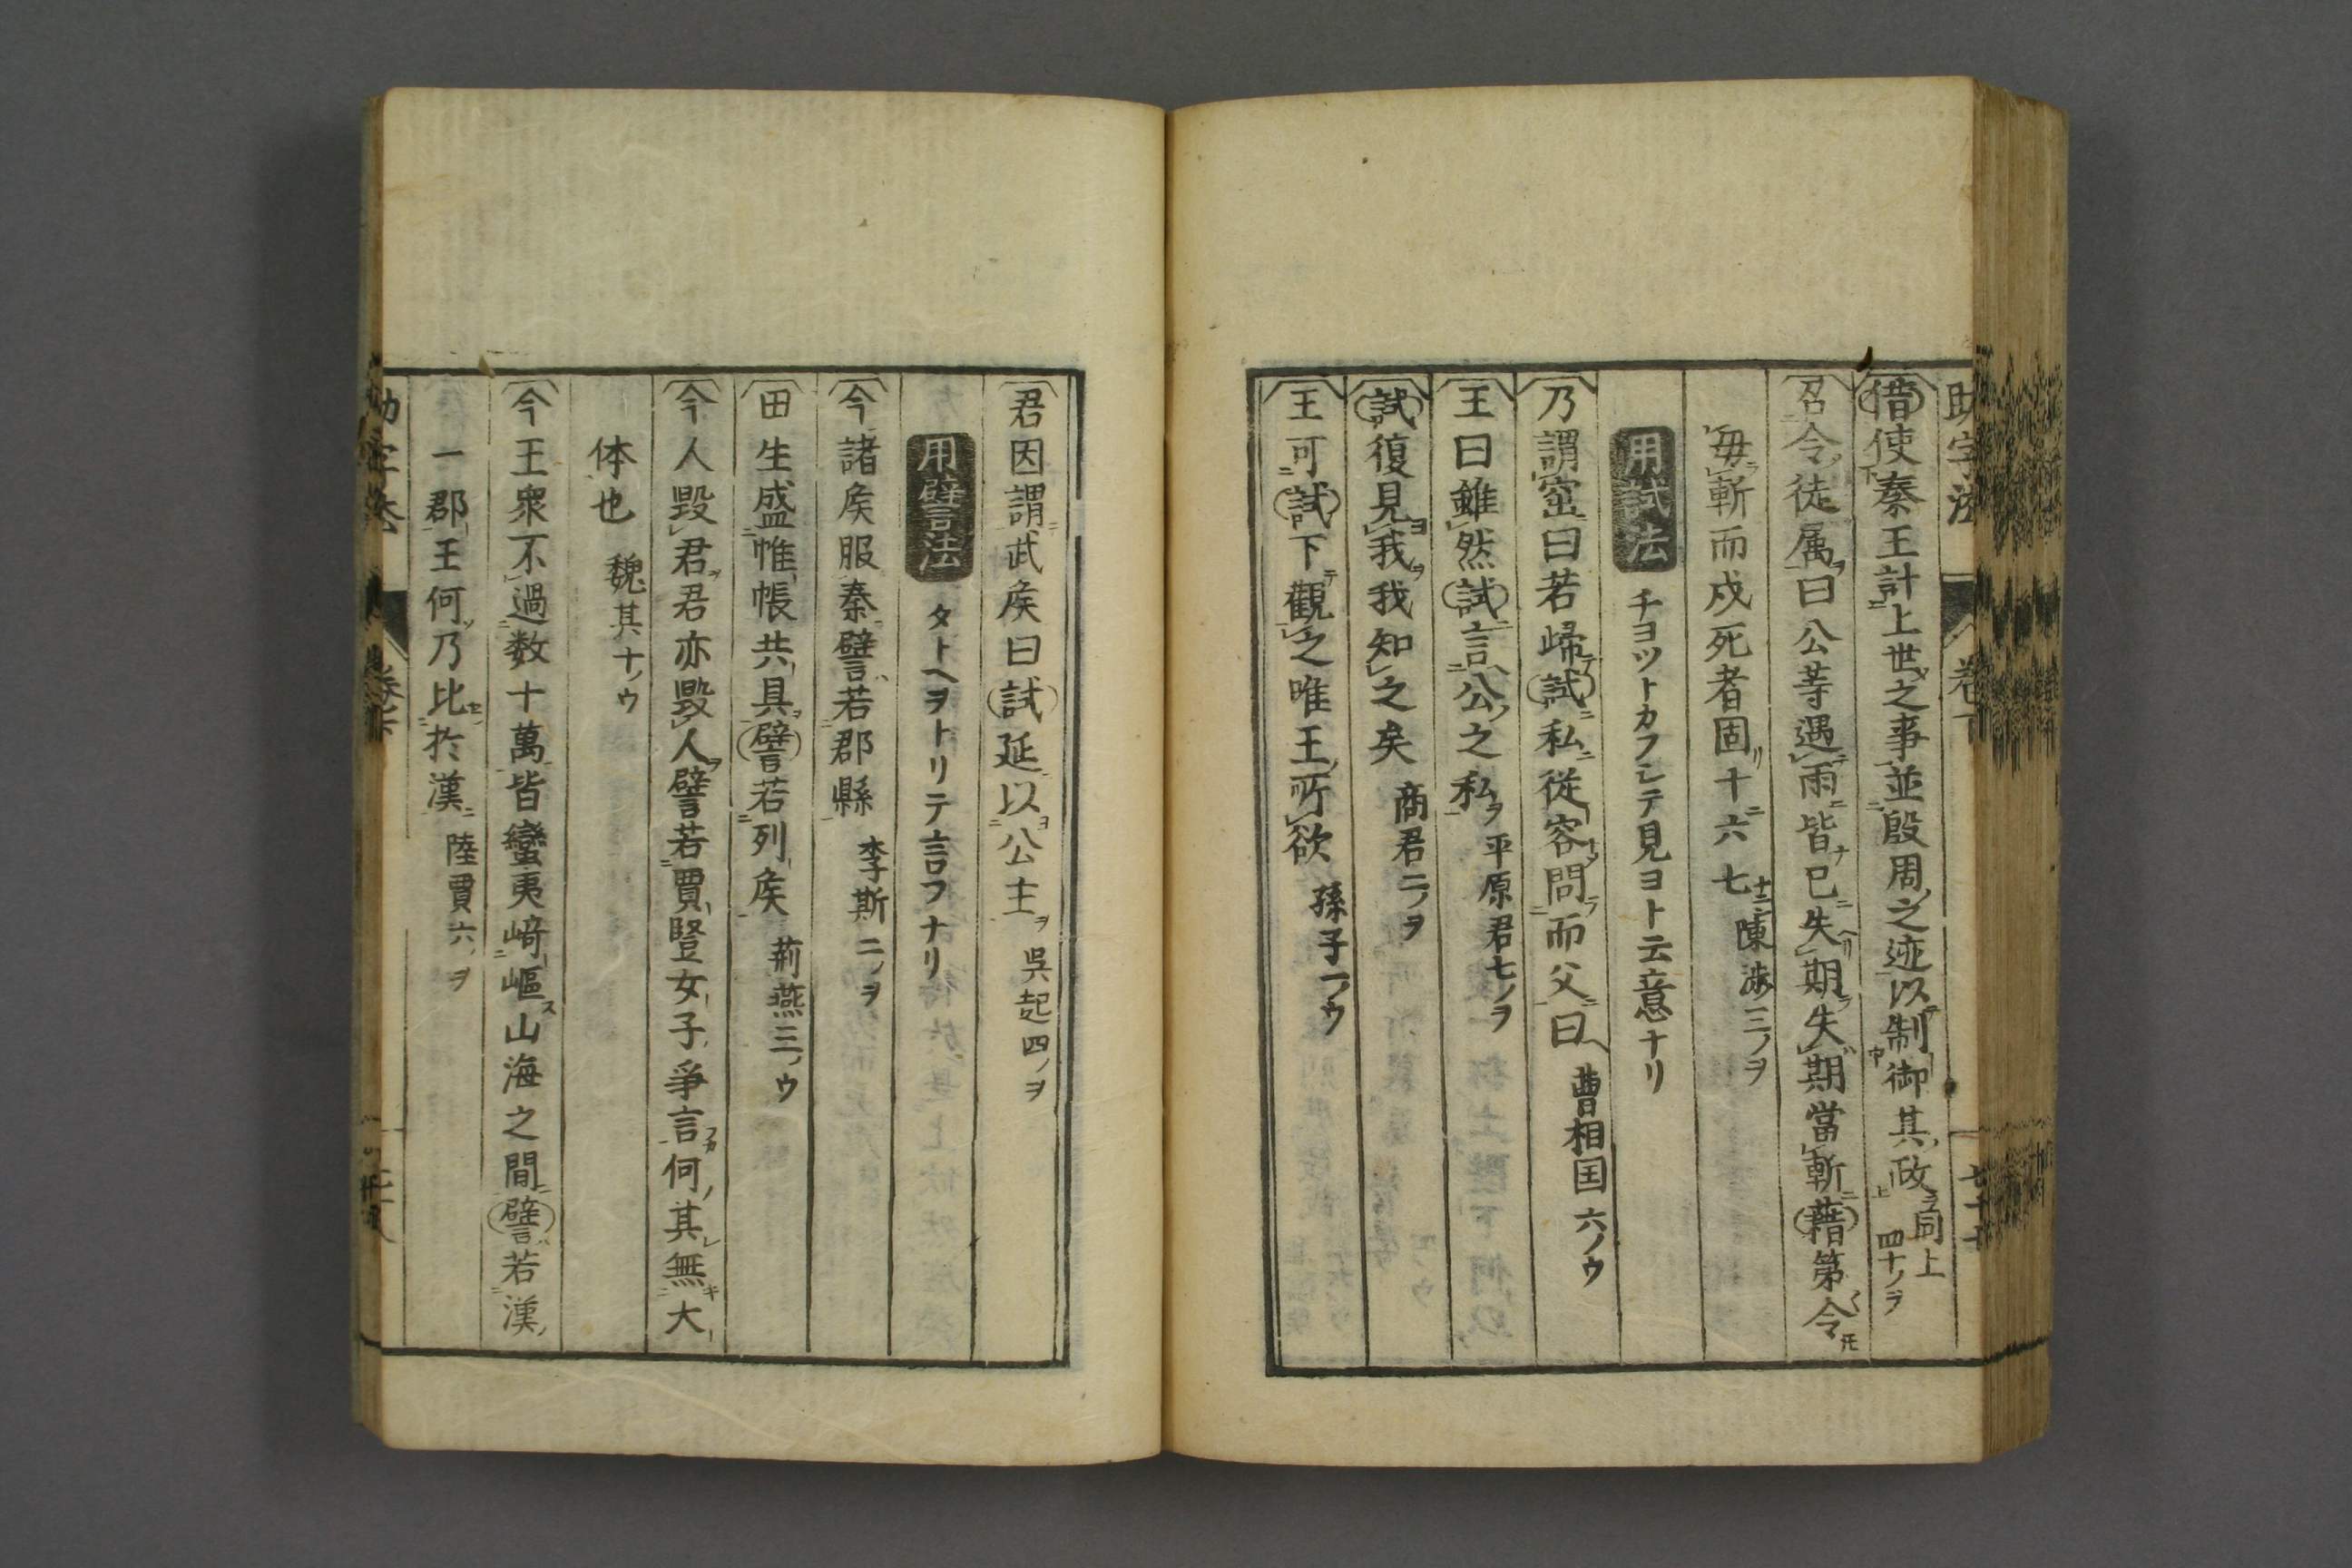 借使秦王計上世之事並殷周之迹以制御其政 同上 四十ノヲ
召令徒属曰公等遇雨皆已失期失期當斬藉第令
毋斬而戍死者固十六七 陳渉三ノヲ
用試法 チヨツトカフシテ見ヨト云意ナリ
乃謂窋曰若歸試私從容問而父曰 曹相国六ノウ
王曰雖然試言公之私 平原君七ノヲ
試復見我我知之矣 商君二ノヲ
王可試下觀之唯王所欲 孫子一ノウ
君因謂武矦曰試延以公主 呉起四ノヲ
用譬法 タトヘヲトリテ言フナリ
今諸矦服秦譬若郡縣 李斯二ノヲ
田生盛帷帳共具譬若列矦 荊燕三ノウ
今人毀君君亦毀人譬若賈豎女子爭言何其無大
体也 魏其十ノウ
今王衆不過数十萬皆蠻夷﨑嶇山海之間譬若漢
一郡王何乃比於漢 陸賈六ノヲ